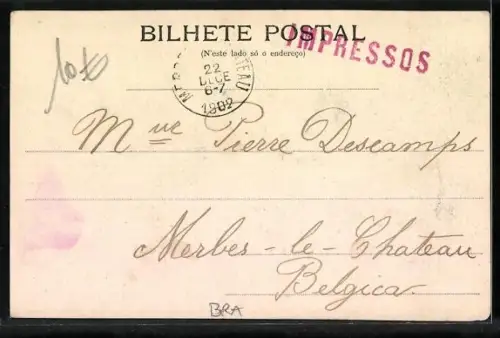 BILHETE POSTAL
(N'este lado só o endereço)
IMPRESSOS
22
DECE
6-7
1902
Mme Pierre Descamps
Merbes-le-Chateau
Belgica
BRA